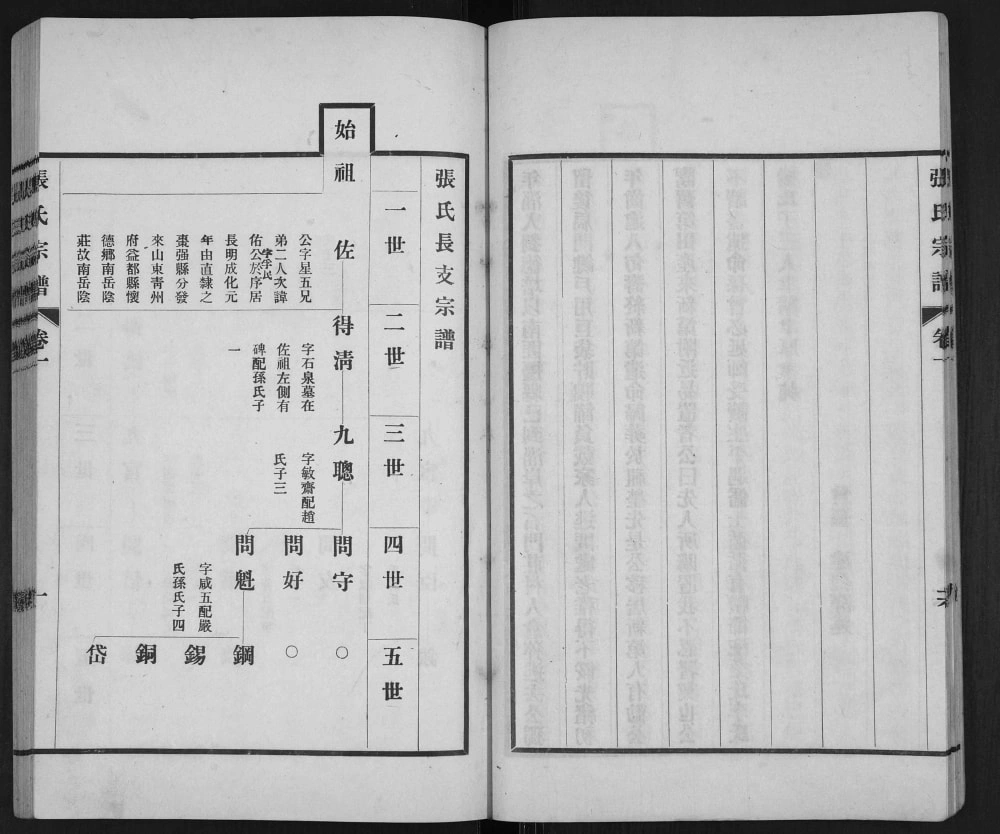 張氏宗譜
卷一
張氏長支宗譜
一世
二世
三世
四世
五世
始祖
佐
得淸
九聰
問守
○
公字星五兄
弟二人次諱
佑公字孚民於序居
長明成化元
年由直隸之
棗强縣分發
來山東靑州
府益都縣懷
德鄉南岳陰
莊故南岳陰
字石泉墓在
佐祖左側有
碑配孫氏子
一
字敏齋配趙
氏子三
問好
○
問魁
字咸五配嚴
氏孫氏子四
鋼
錫
銅
岱
張氏宗譜
卷一
一